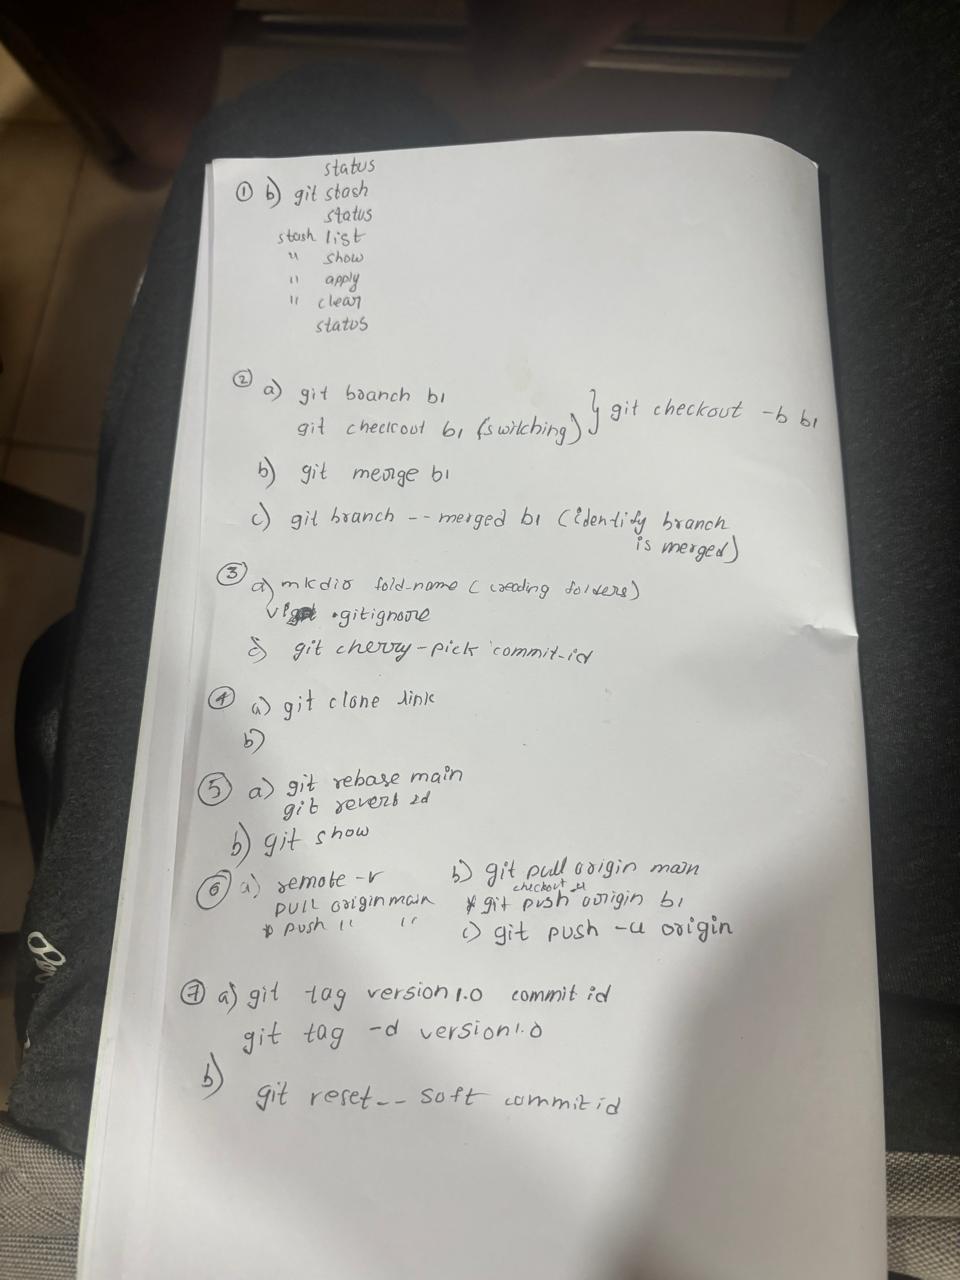 status
① b) git stash
status
stash list
" show
" apply
" clear
status
② a) git branch b1
git checkout b1 (switching) } git checkout -b b1
b) git merge b1
c) git branch -- merged b1 (identify branch
is merged)
③ a) mkdir fold-name (creating folders)
vi .gitignore
c) git cherry-pick commit-id
④ a) git clone link
b)
⑤ a) git rebase main
git revert id
b) git show
⑥ a) remote -v
pull origin main
* push " "
b) git pull origin main
checkout
* git push origin b1
c) git push -u origin
⑦ a) git tag version 1.0 commit id
git tag -d version 1.0
b)
git reset -- soft commit id